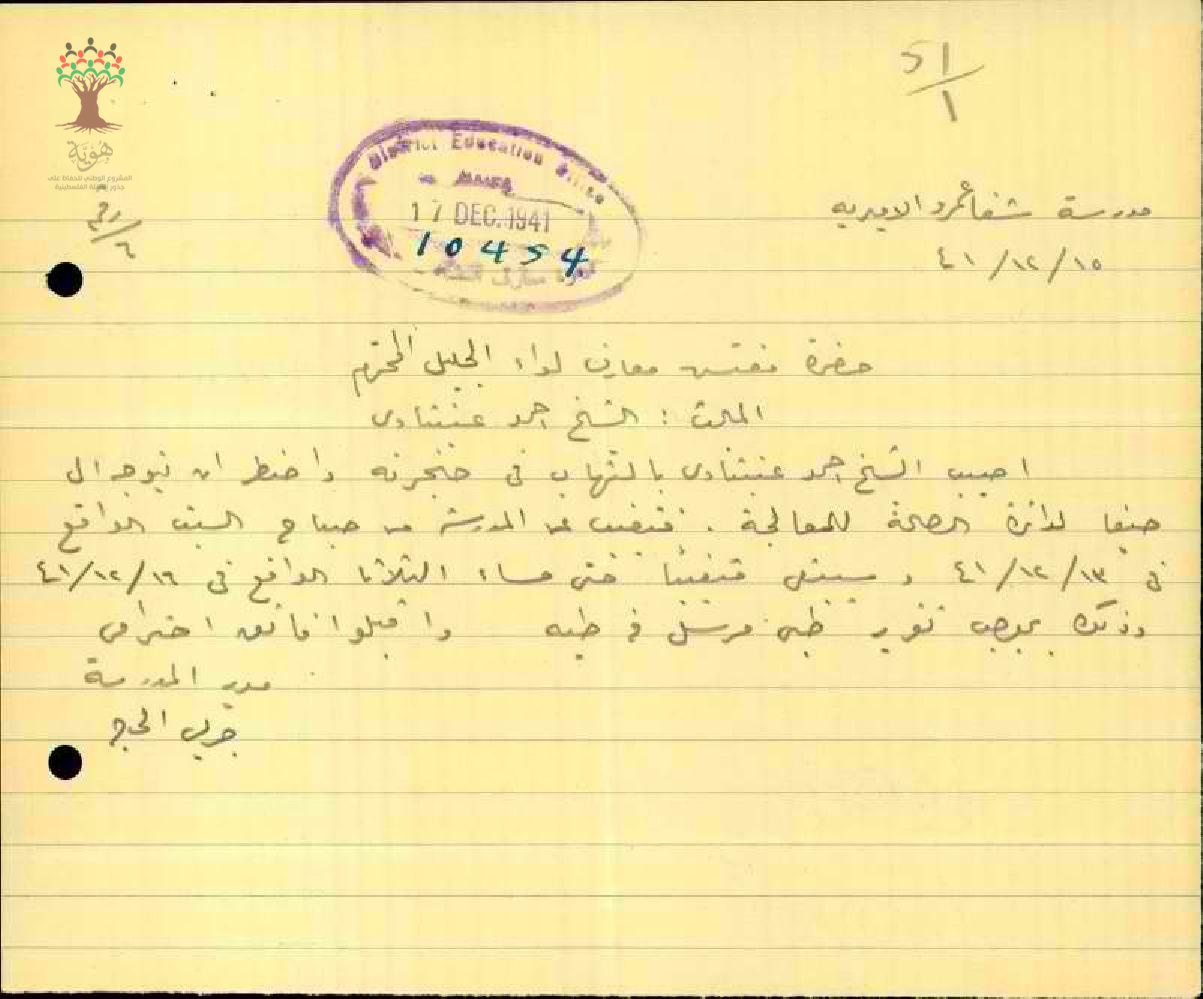 51/1
هوية
المشروع الوطني للحفاظ على
جذور العائلة الفلسطينية
District Education Office
HAIFA
17 DEC. 1941
10454
مدرسة شفاعمرو الاميريه
٤١/١٢/١٥
حضرة مفتش معارف لواء الجليل المحترم
الشيخ احمد عشناوى
اصيب الشيخ احمد عشناوى بالتهاب فى حنجرته واضطر ان يتوجه الى
حيفا لدائرة الصحة للمعالجة . فتغيب عن المدرسة من صباح السبت الواقع
فى ٤١/١٢/١٣ و سيبقى متغيبا حتى مساء الثلاثا الواقع فى ٤١/١٢/١٦
وذلك بموجب تقرير طبى مرسل فى طيه واقبلوا فائق احترامى
مدير المدرسة